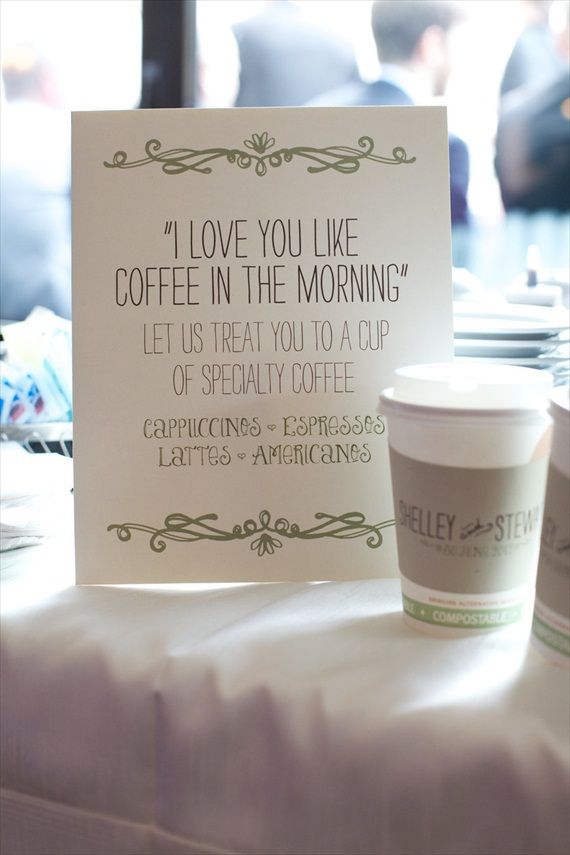 "I LOVE YOU LIKE
COFFEE IN THE MORNING"
LET US TREAT YOU TO A CUP
OF SPECIALTY COFFEE
CAPPUCCINOS ESPRESSOS
LATTES AMERICANOS
SHELLEY STEWA
COMPOSTABLE